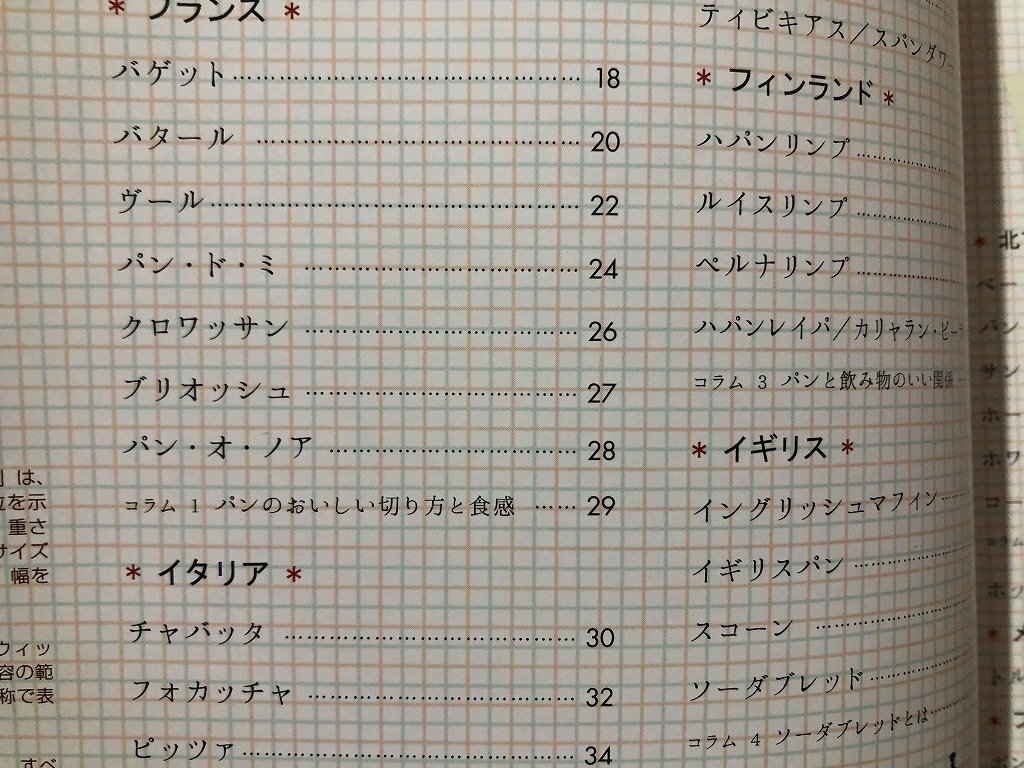 * フランス *
バゲット…………………………… 18
バタール ………………………… 20
ヴール…………………………… 22
パン・ド・ミ ……………………… 24
クロワッサン ……………………… 26
ブリオッシュ ……………………… 27
パン・オ・ノア …………………… 28
コラム 1 パンのおいしい切り方と食感 …… 29
* イタリア *
チャバッタ ……………………… 30
フォカッチャ …………………… 32
ピッツァ………………………… 34
ティビキアス／スパンダワー
* フィンランド *
ハパンリンプ…………
ルイスリンプ…………
ペルナリンプ…………
ハパンレイパ／カリャラン・ピー
コラム 3 パンと飲み物のいい関係
* イギリス *
イングリッシュマフィン……
イギリスパン …………
スコーン ……………
ソーダブレッド…………
コラム 4 ソーダブレッドとは……
は、
を示
重さ
サイズ
幅を
ウィッ
容の範
称で表
すべ
* 北
ベー
パン
サン
ホー
ホワ
コー
コラム
*